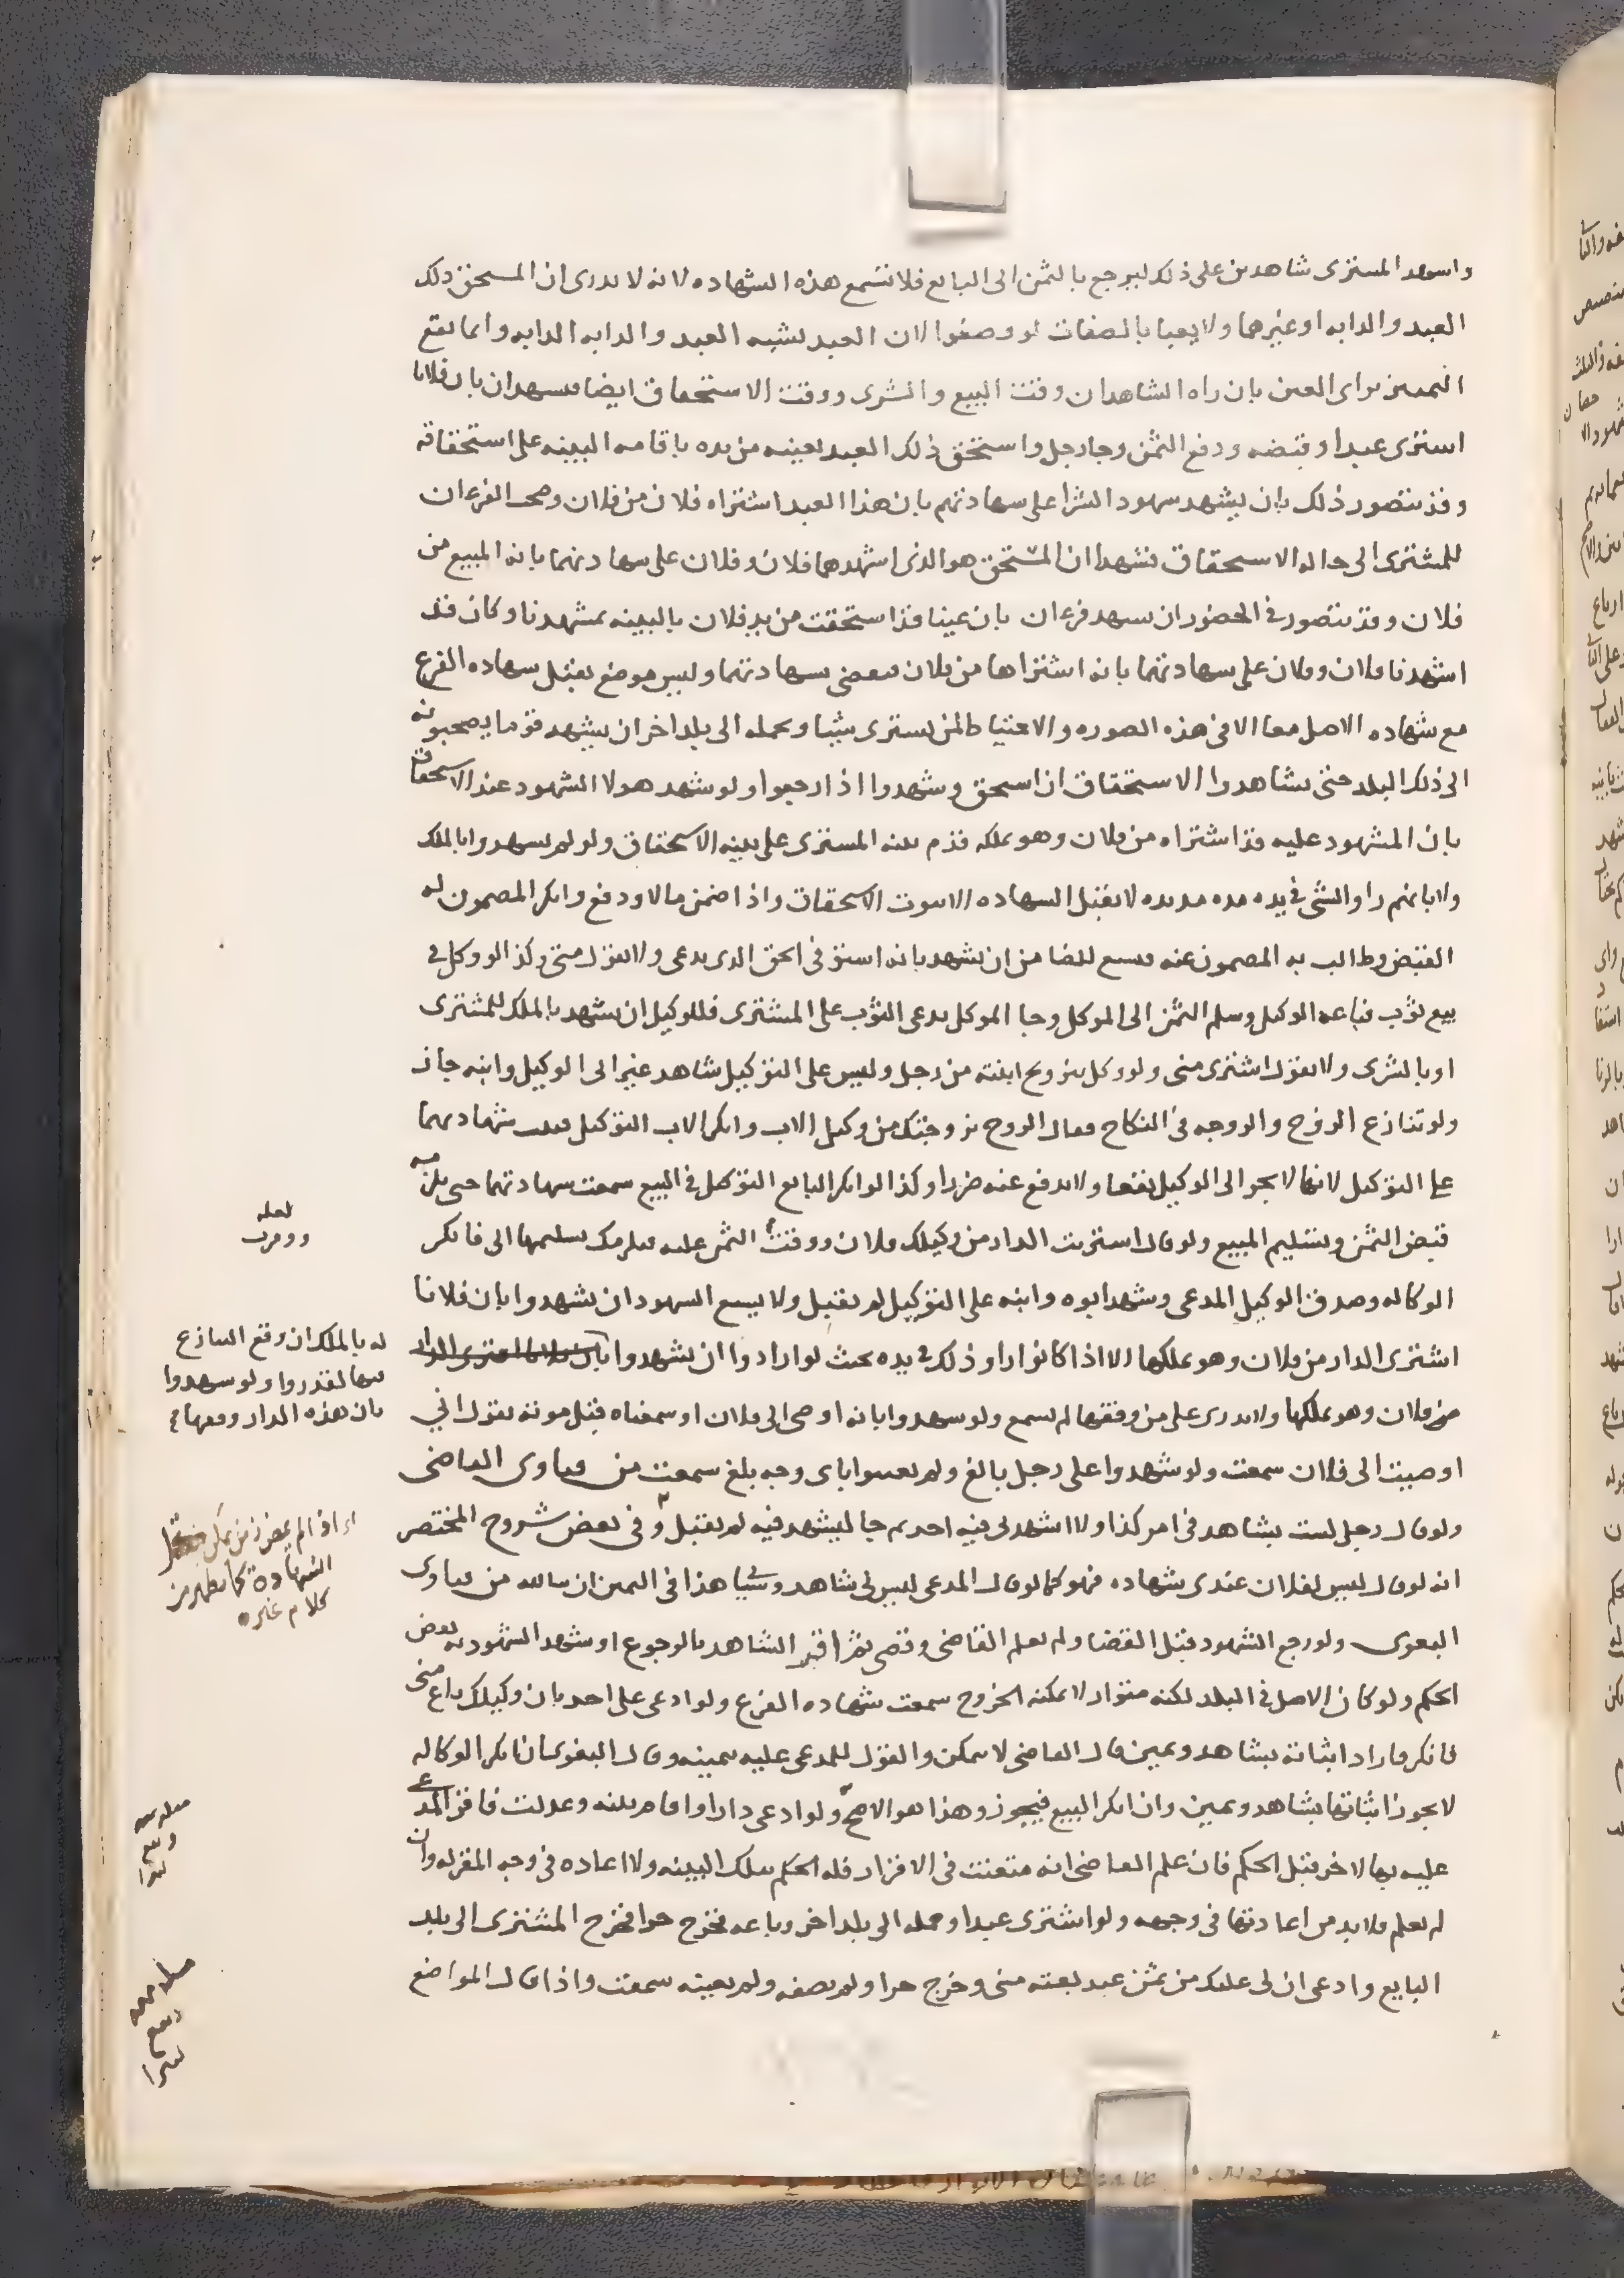 واسهد المشترى شاهدين على ذلك ليرجع بالثمن الى البايع فلا تسمع هذه الشهاده لانه لا يدرى ان المستحق ذلك
العبد والدابه او غيرها ولا يعبا بالصفات لو وصفوا لان العبد يشبه العبد والدابه الدابه وانما يقع
التمييز براى العين بان راه الشاهدان وقت البيع والشرى ووقت الاستحقاق ايضا فيشهدان بان فلانا
اشترى عبدا وقبضه ودفع الثمن وجا رجل واستحق ذلك العبد بعينه من يده باقامه البينه على استحقاقه
وقد يتصور ذلك بان يشهد شهود الشرا على شهادتهم بان هذا العبد اشتراه فلان من فلان وصحب الفرعان
للمشترى الى حاله الاستحقاق فشهدا ان المستحق هو الذى اشهدهما فلان وفلان على شهادتهما بانه المبيع من
فلان وقد يتصور فى الحضور ان يشهد فرعان بان عينا قد استحقت من يد فلان بالبينه بمشهدنا وكان قد
اشهدنا فلان وفلان على شهادتهما بانه اشتراها من فلان فيقضى بشهادتهما وليس موضع يقبل شهاده الفرع
مع شهاده الاصل معا الا فى هذه الصوره والاحتياط لمن يشترى شيا ويحمله الى بلد اخر ان يشهد قوما يصحبونه
الى ذلك البلد حتى يشاهدوا الاستحقاق ان استحق وشهدوا اذا رجعوا ولو شهد هولا الشهود عند الاستحقاق
بان المشهود عليه قد اشتراه من فلان وهو يملكه قدم بينه المشترى على بينه الاستحقاق ولو لم يشهدوا بالملك
ولا بانهم راوا الشى فى يده مده مديده لا تقبل الشهاده الا بثبوت الاستحقاق واذا ضمن مالا ودفع وانكر المضمون له
القبض وطالب به المضمون عنه فيسع للضامن ان يشهد بانه استوفى الحق الذى يدعى ولا يقول منى وكذا لو وكل فى
بيع ثوب فباعه الوكيل وسلم الثمن الى الموكل وجا الموكل يدعى الثوب على المشترى فللوكيل ان يشهد بالملك للمشترى
او بالشرى ولا يقول اشترى منى ولو وكل بتزويج ابنته من رجل وليس على التوكيل شاهد غير الى الوكيل وابنه جاز
ولو تنازع الزوج والزوجه فى النكاح فقال الزوج تزوجتك من وكيل الاب وانكر الاب التوكيل قبلت شهادتهما
على التوكيل لانها لا يجر الى الوكيل نفعا ولا يدفع عنه ضررا وكذا لو انكر البايع التوكيل فى البيع سمعت شهادتهما حتى يلزمه
قبض الثمن وتسليم المبيع ولو قال اشتريت الدار من وكيلك فلان ووقت الثمن عليه فيلزمك تسليمها الى فانكر
الوكاله وصدق الوكيل المدعى وشهد ابوه وابنه على التوكيل لم يقبل ولا يسع الشهود ان يشهدوا بان فلانا
اشترى الدار من فلان وهو يملكها الا اذا كانوا راو ذلك فى يده بحيث لو ارادوا ان يشهدوا بان فلانا اشترى الدار
من فلان وهو يملكها ولا يدرى على من وقفها لم يسمع ولو شهدوا بانه اوصى الى فلان او سمعناه قبل موته يقول انى
اوصيت الى فلان سمعت ولو شهدوا على رجل بالغ ولم يعينوا باى وجه بلغ سمعت من فتاوى القاضى
ولو قال رجل لست بشاهد فى امر كذا ولا اشهد لى فيه احد ثم جا ليشهد فيه لم يقبل وفى بعض شروح المختصر
انه لو قال ليس لفلان عندى شهاده فهو كما لو قال المدعى ليس لى شاهد وسياتى هذا فى اليمين ان شاالله من فتاوى
البغوى ولو رجع الشهود قبل القضا ولم يعلم القاضى وقضى ثم اقر الشاهد بالرجوع او شهد الشهود به نقض
الحكم ولو كان الاصل فى البلد لكنه متوار لا يمكنه الخروج سمعت شهاده الفرع ولو ادعى على احد بان وكيلك باع منى
فانكر فاراد اثباته بشاهد ويمين قال القاضى لا يمكن والقول للمدعى عليه بيمينه وقال البغوى ان انكر الوكاله
لا يجوز اثباتها بشاهد ويمين وان انكر البيع فيجوز وهذا هو الاصح ولو ادعى دارا واقام بينه وعدلت فاقر المدعى
عليه بها لاخر قبل الحكم فان علم القاضى انه متعنت فى الاقرار فله الحكم بتلك البينه ولا اعاده فى وجه المقر له وان
لم يعلم فلا بد من اعادتها فى وجهه ولو اشترى عبدا وحمله الى بلد اخر وباعه فخرج حرا فخرج المشترى الى بلد
البايع وادعى ان لى عليك من ثمن عبد بعته منى وخرج حرا ولم يصفه ولم يعينه سمعت واذا قال المواضع
لعله
ووفرت
له بالملك ان وقع التنازع
فيها لقدروا ولو شهدوا
بان هذه الدار وقفها
اى اذا لم يمض زمن يمكن
الشهادة كما يظهر من
كلام غيره